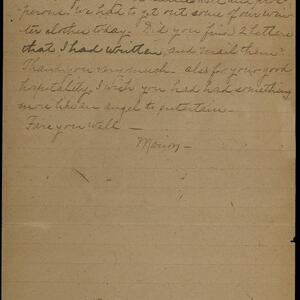 perous. We hate to get out some of our win-
ter clothes today. Did you find 2 letters
that I had written, and mail them?
Thank you very much – also for your good
hospitality. I wish you had had something
more like an angel to entertain –
Fare you well –
Marion –